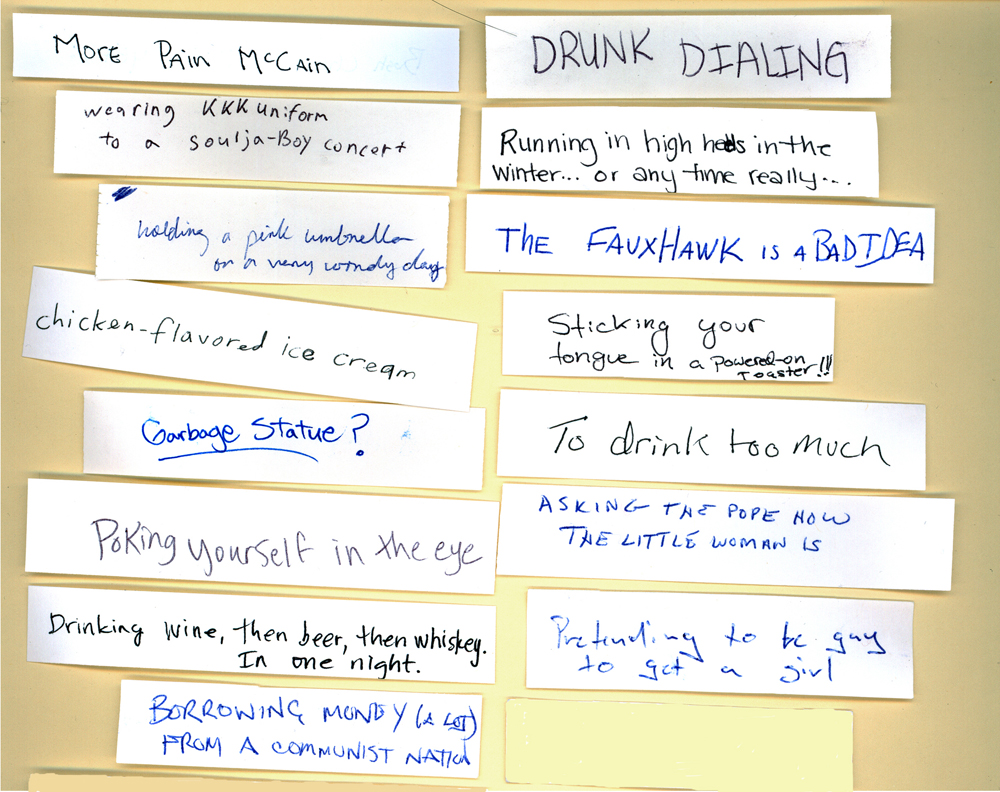 More Pain McCain
wearing KKK uniform
to a soulja-Boy concert
holding a pink umbrella
on a very windy day
chicken-flavored ice cream
Garbage Statue?
Poking yourself in the eye
Drinking wine, then beer, then whiskey.
In one night.
BORROWING MONEY (A LOT)
FROM A COMMUNIST NATION
DRUNK DIALING
Running in high heels in the
winter... or any time really....
THE FAUXHAWK IS A BAD IDEA
Sticking your
tongue in a powered-on
toaster!!
To drink too much
ASKING THE POPE HOW
THE LITTLE WOMAN IS
Pretending to be guy
to get a girl